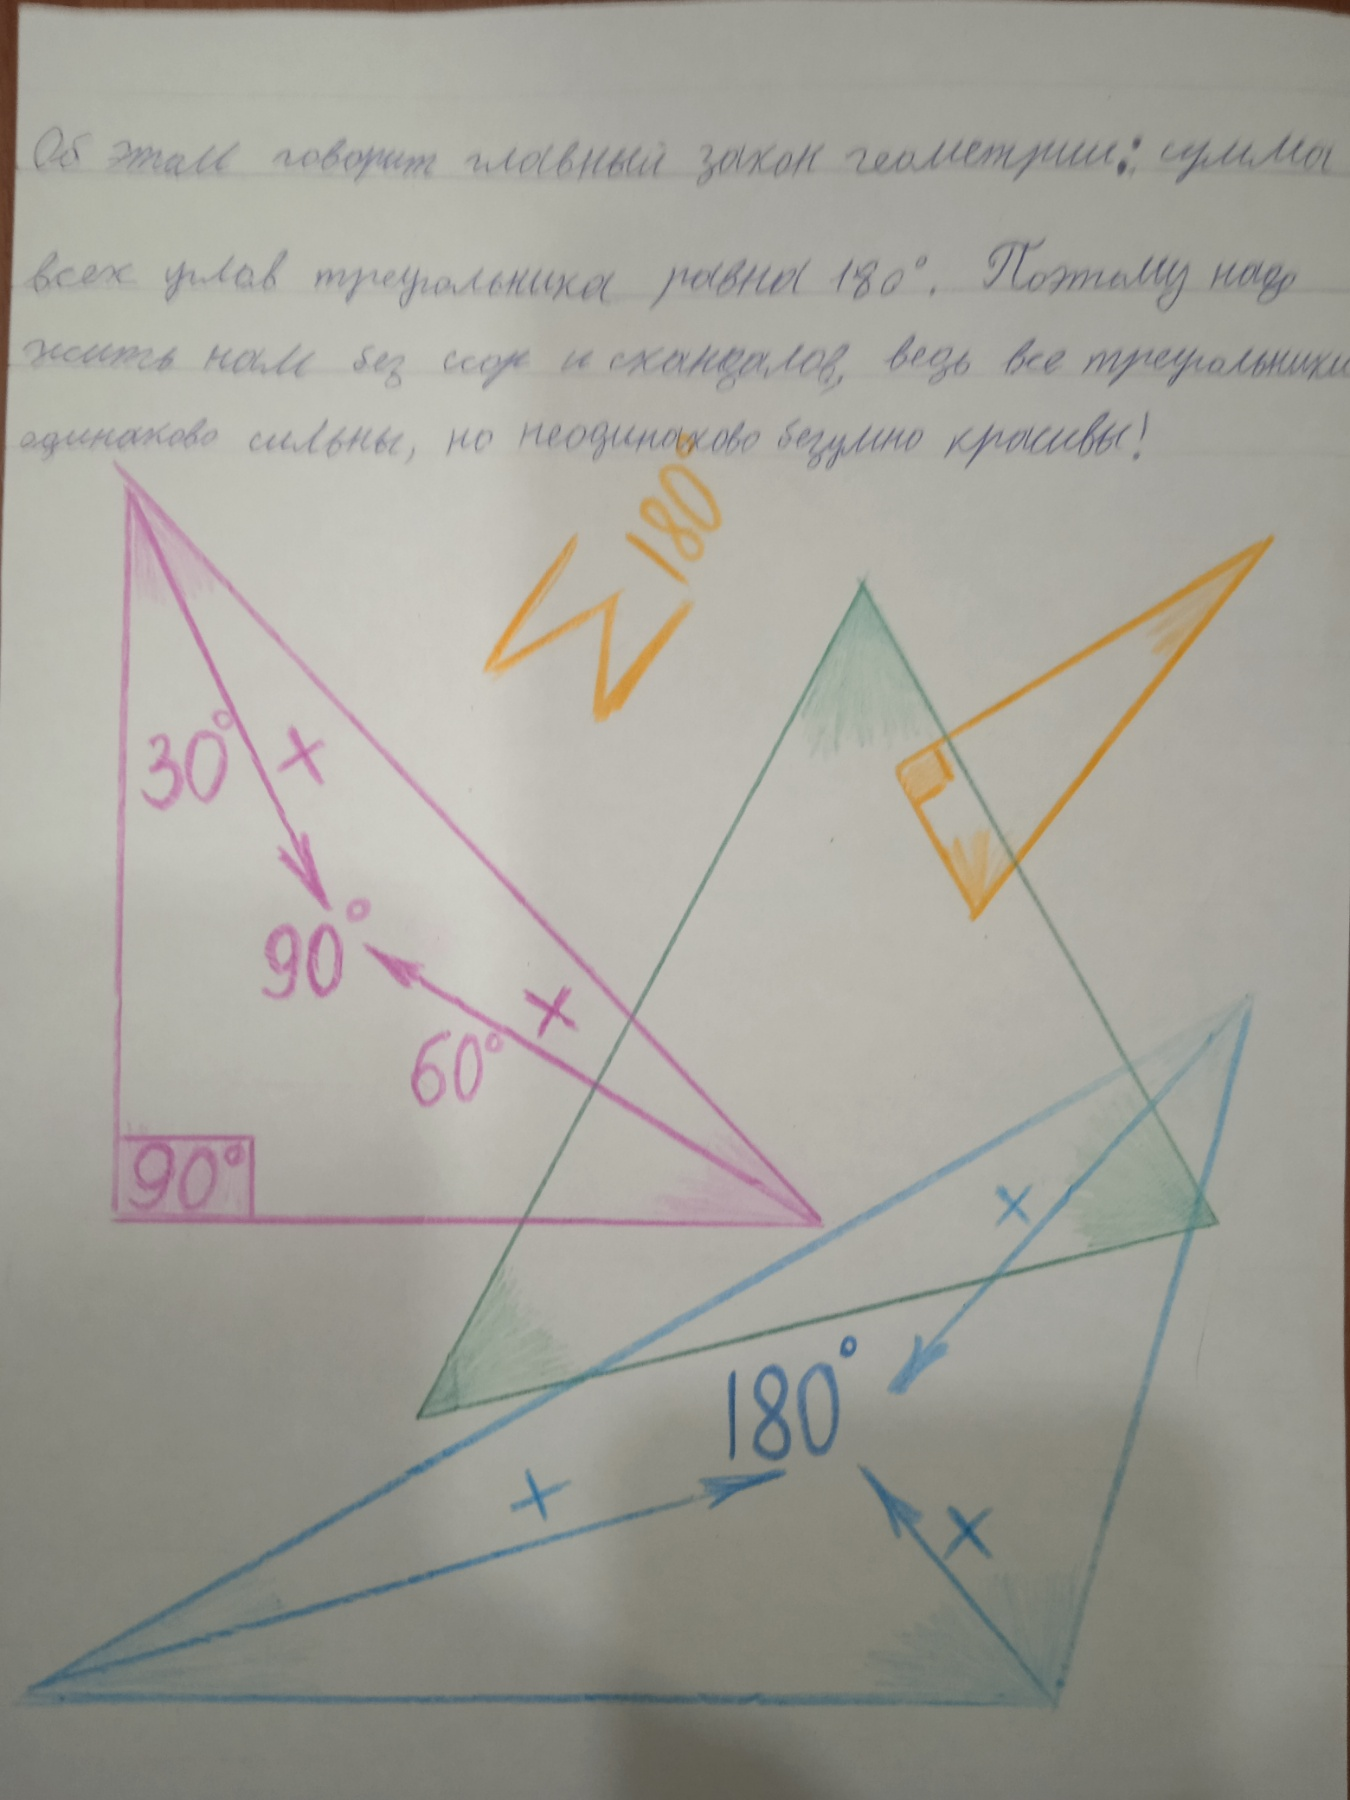 Об этом говорит главный закон геометрии: сумма
всех углов треугольника равна 180°. Поэтому надо
жить нам без ссор и скандалов, ведь все треугольники
одинаково сильны, но неодинаково безумно красивы!
∑ 180°
30° +
90°
+
60°
90°
+
180°
+
+